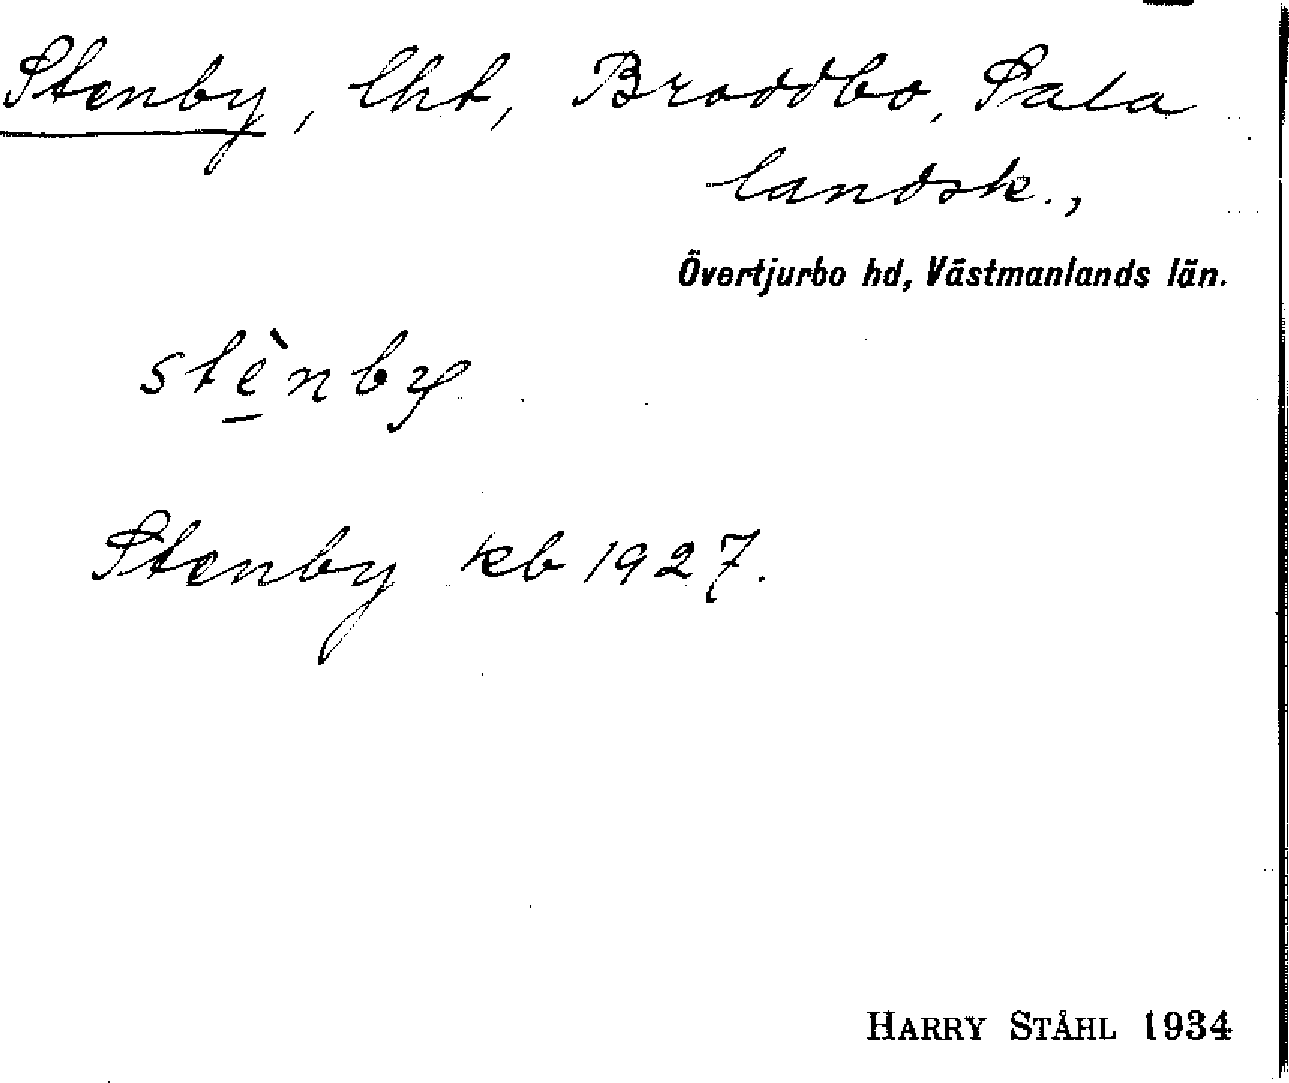 Stenby, lht, Broddbo, Sala
landsk.,
Övertjurbo hd, Västmanlands län.
stè̱nby
Stenby kb 1927.
HARRY STÅHL 1934